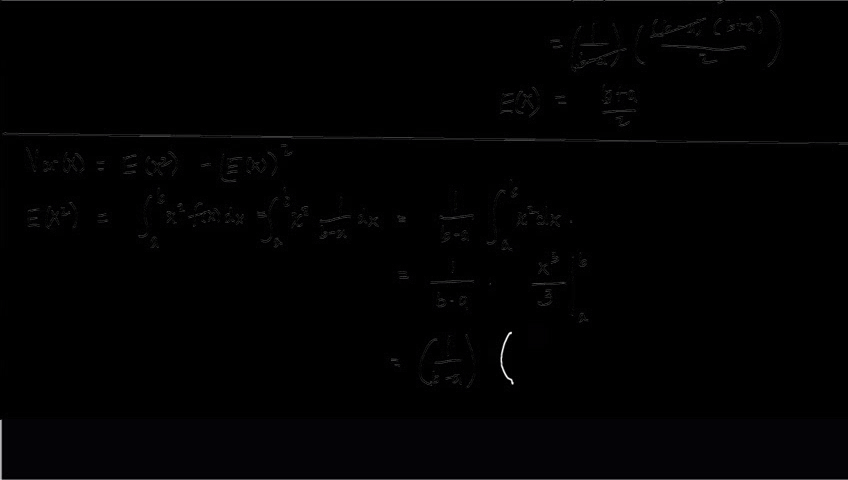 = (1/(b-a)) ((b-a)(b+a)/2)
E(X) = (b+a)/2
Var(X) = E(X²) - [E(X)]²
E(X²) = ∫ₐᵇ x² f(x) dx = ∫ₐᵇ x² 1/(b-a) dx = 1/(b-a) ∫ₐᵇ x² dx.
= 1/(b-a) · x³/3 |ₐᵇ
= (1/(b-a)) (